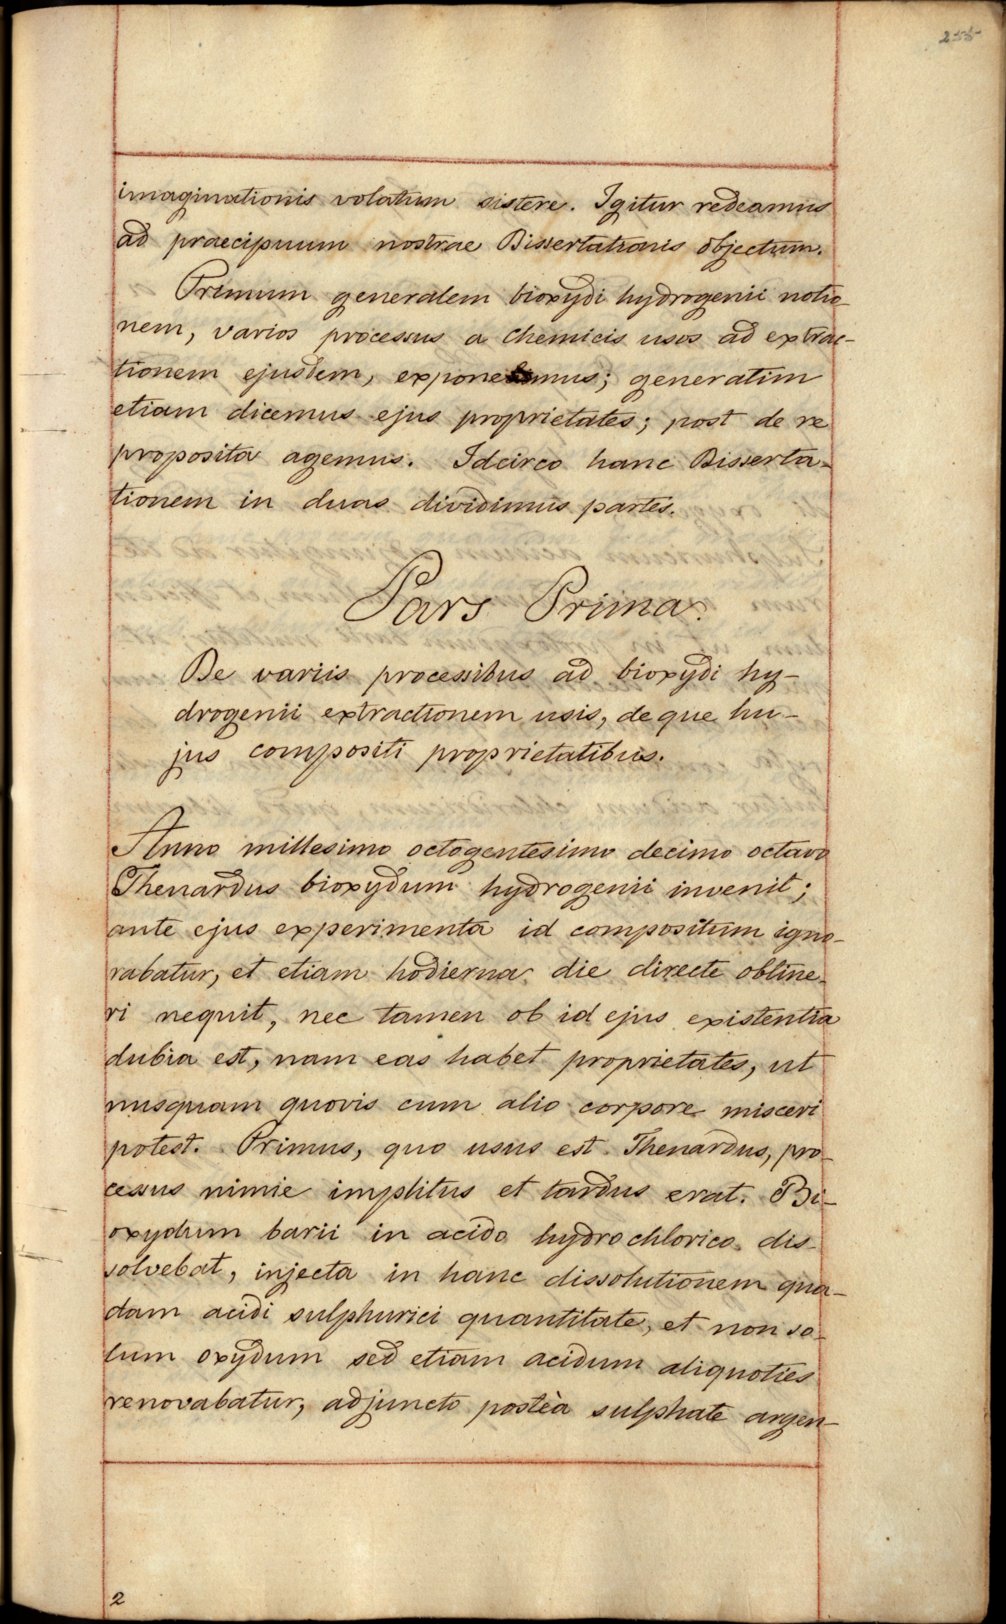 255
imaginationis volatum sistere. Igitur redeamus
ad praecipuum nostrae Dissertationis objectum.
Primum generalem bioxydi hydrogenii notio-
nem, varios processus a chemicis usos ad extrac-
tionem ejusdem, exponemus; generatim
etiam dicemus ejus proprietates; post de re
proposita agemus. Idcirco hanc Disserta-
tionem in duas dividimus partes.
Pars Prima.
De variis processibus ad bioxydi hy-
drogenii extractionem usis, deque hu-
jus compositi proprietatibus.
Anno millesimo octogentesimo decimo octavo
Thenardus bioxydum hydrogenii invenit;
ante ejus experimenta id compositum igno-
rabatur, et etiam hodierna die directe obtine-
ri nequit, nec tamen ob id ejus existentia
dubia est, nam eas habet proprietates, ut
nusquam quovis cum alio corpore misceri
potest. Primus, quo usus est Thenardus, pro-
cessus nimie implitus et tardus erat. Bi-
oxydum barii in acido hydrochlorico dis-
solvebat, injecta in hanc dissolutionem qua-
dam acidi sulphurici quantitate, et non so-
lum oxydum sed etiam acidum aliquoties
renovabatur, adjuncto posteà sulphate argen-
2